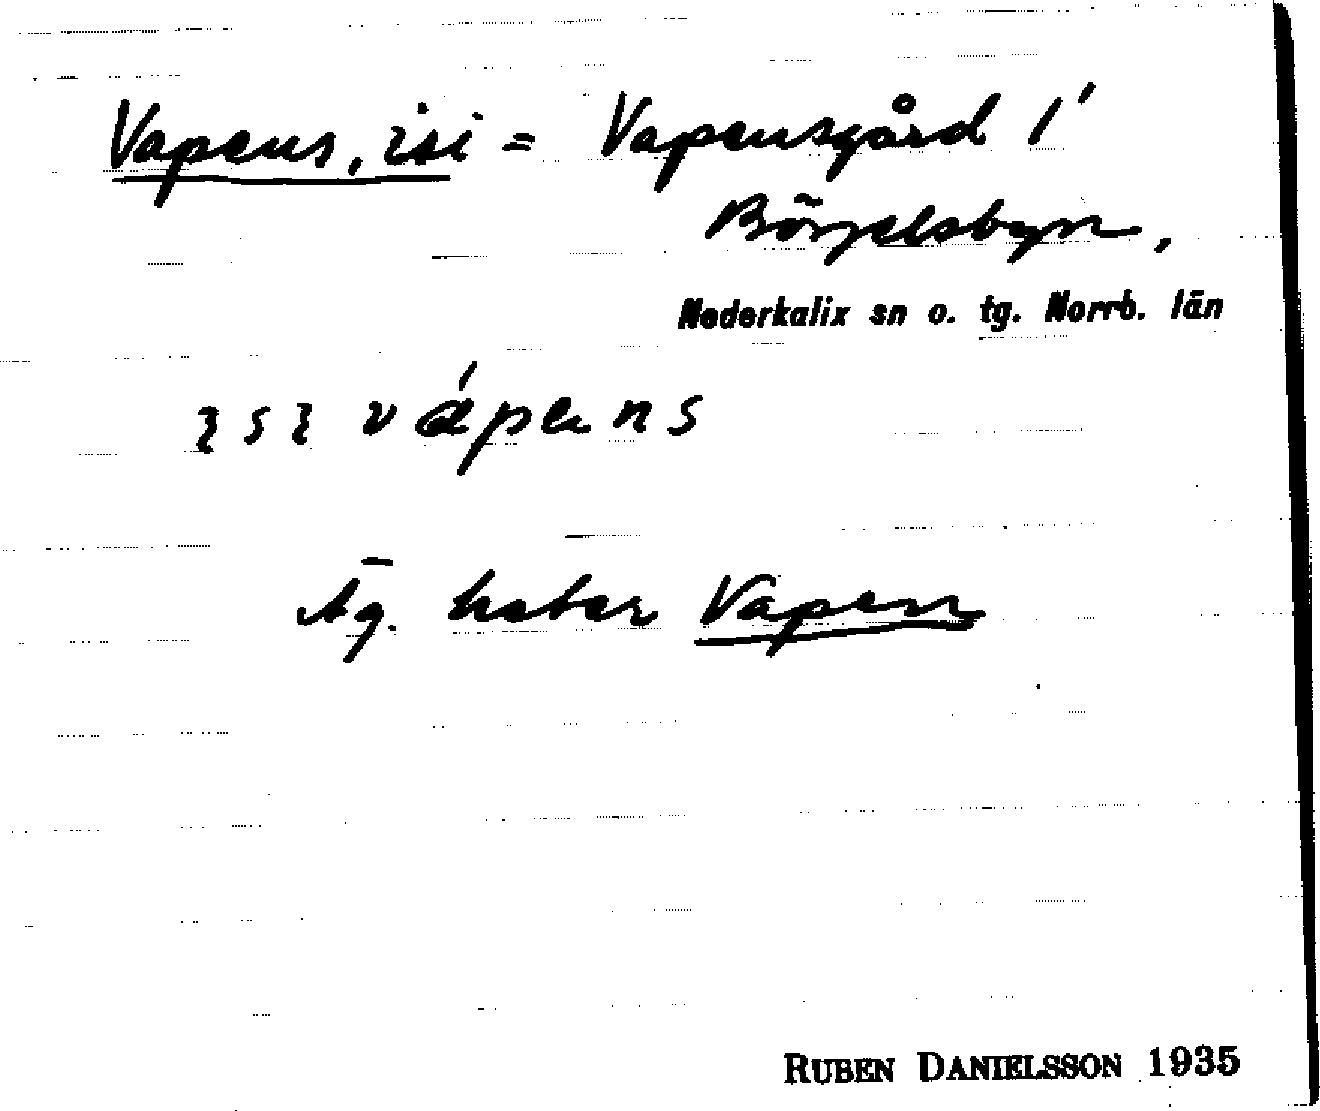 Vapens, isi = Vapensgård i
Börjelsbyn,
Nederkalix sn o. tg. Norrb. län
ısı vápens
Äg. heter Vapen
RUBEN DANIELSSON 1935